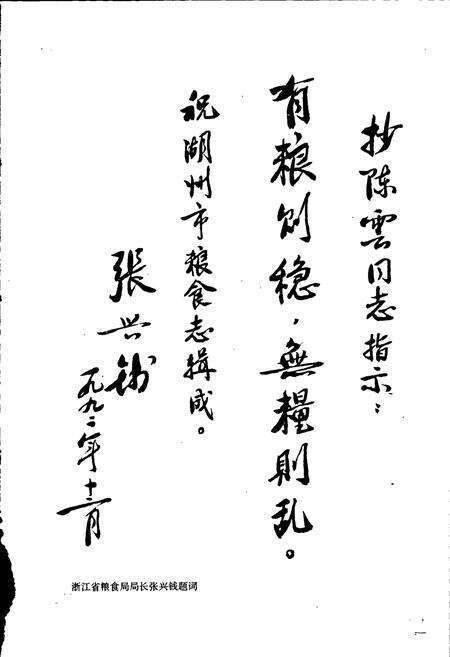 抄陈雲同志指示：
有粮则稳，無糧則乱。
祝湖州市粮食志揖成。
張兴钱
一九九二年十二月
浙江省粮食局局长张兴钱题词
一